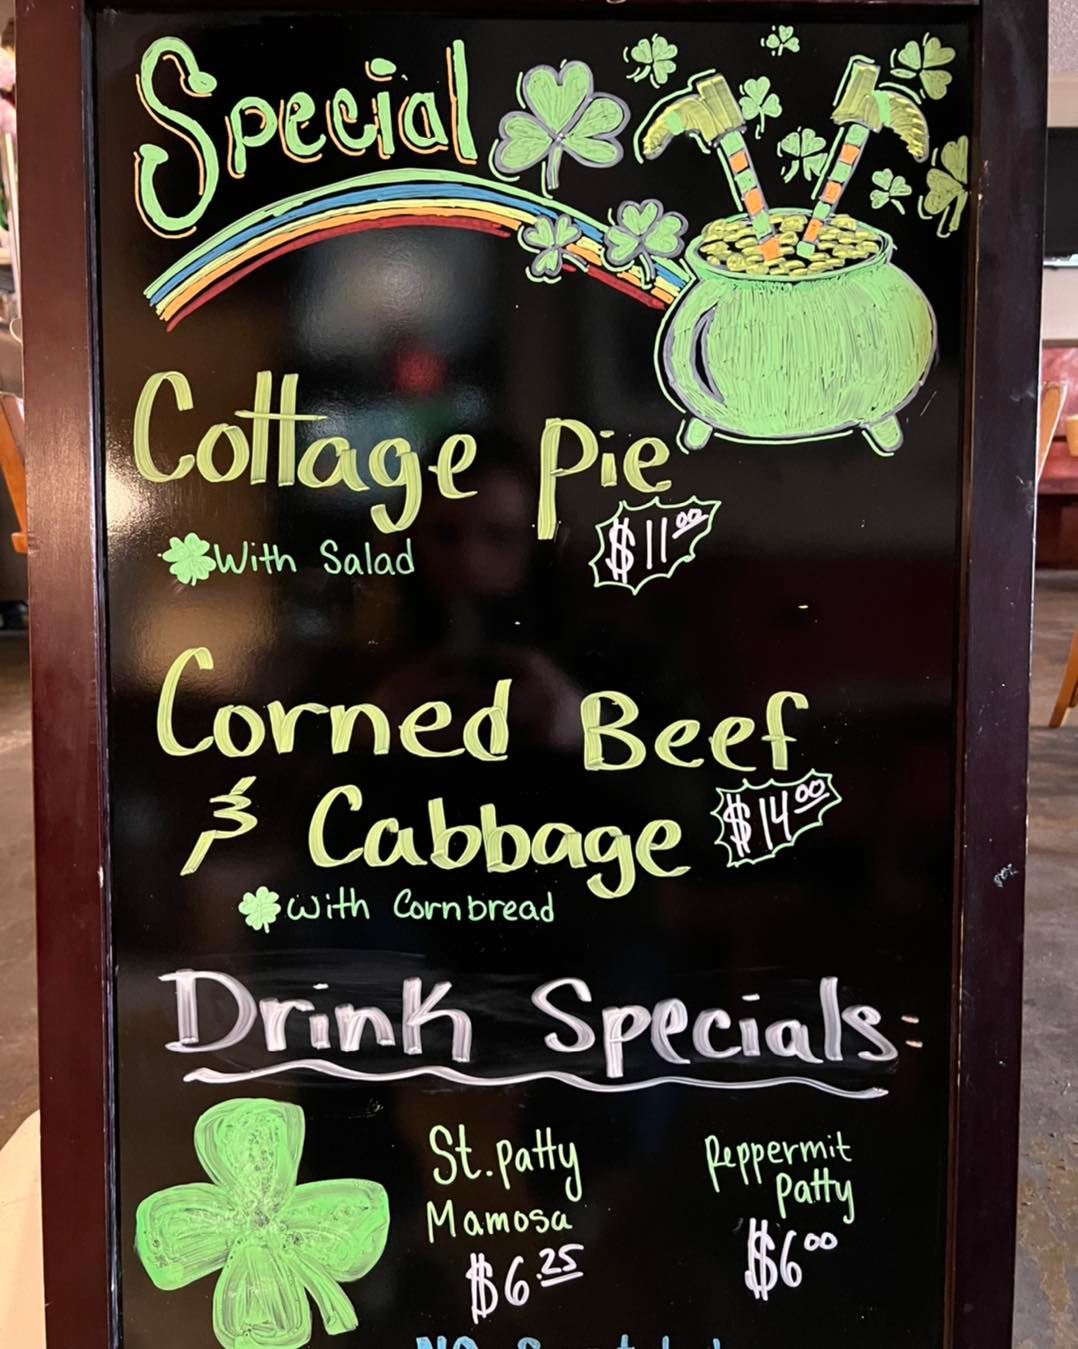 Special
Cottage Pie
$11.00
With Salad
Corned Beef
& Cabbage
$14.00
With Cornbread
Drink Specials:
St. Patty
Mamosa
$6.25
Peppermit
Patty
$6.00